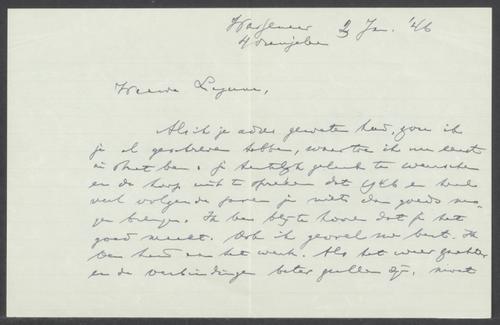 Wassenaar 3 Jan. '46
Als ik je adres geweten had, zou ik
je al geschreven hebben, waartoe ik nu eerst
in staat ben. je hartelijk geluk te wenschen
en de hoop uit te spreken dat 1946 en heel
veel volgende jaren je niets dan goeds mo-
ge brengen. Ik ben blij te hooren dat je het
goed maakt. Ook ik gevoel me best. Ik
ben hard aan het werk. Als het weer zachter
en de verbindingen beter zullen zijn, moet